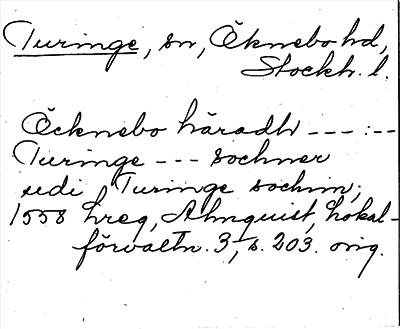 Turinge, sn, Öknebo hd,
Stockh. l.
Öcknebo häradh --- : --
Turinge --- sochner
udi Turinge sochnn,
1558 hreg, Almquist, Lokal-
förvaltn. 3, s. 203. orig.